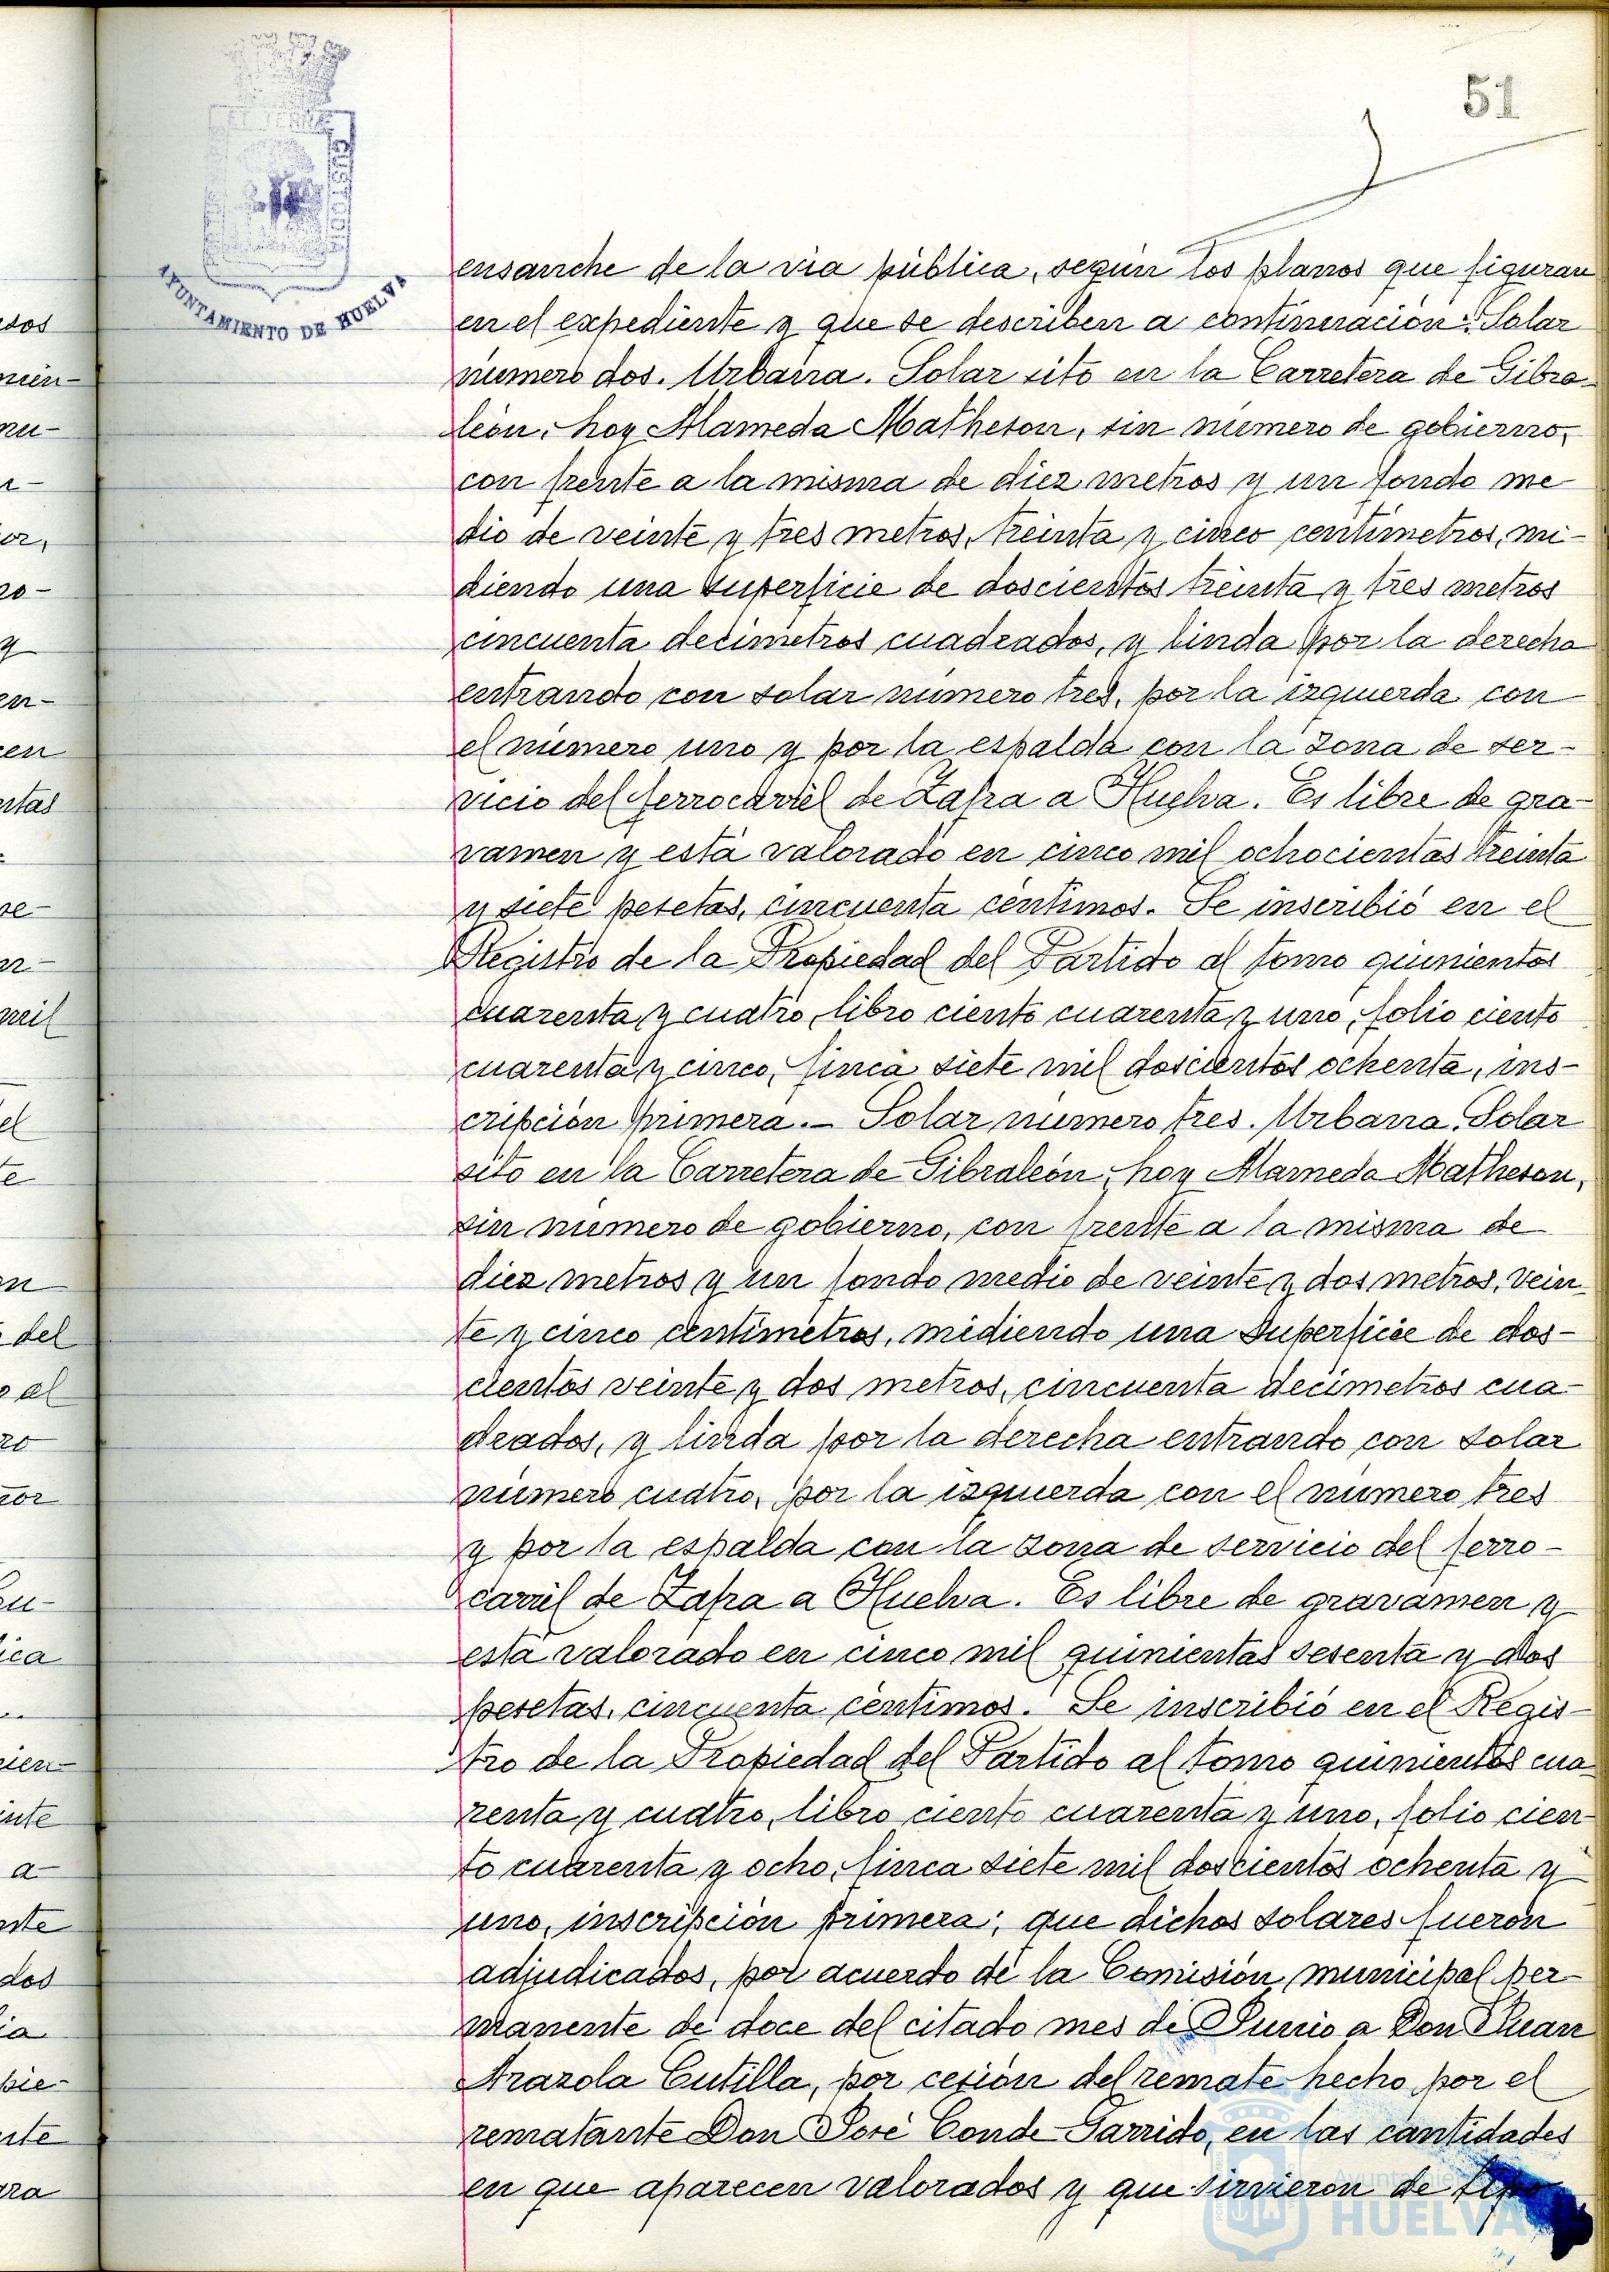 51
ET TERRÆ
CUSTODIA
AYUNTAMIENTO DE HUELVA
ensanche de la via pública, según los planos que figuran
en el expediente y que se describen a continuación: Solar
número dos. Urbana. Solar sito en la Carretera de Gibra-
león, hoy Alameda Matheson, sin número de gobierno,
con frente a la misma de diez metros y un fondo me-
dio de veinte y tres metros, treinta y cinco centímetros, mi-
diendo una superficie de doscientos treinta y tres metros
cincuenta decímetros cuadrados, y linda por la derecha
entrando con solar número tres, por la izquierda con
el número uno y por la espalda con la zona de ser-
vicio del ferrocarril de Zafra a Huelva. Es libre de gra-
vamen y está valorado en cinco mil ochocientas treinta
y siete pesetas, cincuenta céntimos. Se inscribió en el
Registro de la Propiedad del Partido al tomo quinientos
cuarenta y cuatro, libro ciento cuarenta y uno, folio ciento
cuarenta y cinco, finca siete mil doscientos ochenta, ins-
cripción primera.- Solar número tres. Urbana. Solar
sito en la Carretera de Gibraleón, hoy Alameda Matheson,
sin número de gobierno, con frente a la misma de
diez metros y un fondo medio de veinte y dos metros, vein-
te y cinco centímetros, midiendo una superficie de dos-
cientos veinte y dos metros, cincuenta decímetros cua-
drados, y linda por la derecha entrando con solar
número cuatro, por la izquierda con el número tres
y por la espalda con la zona de servicio del ferro-
carril de Zafra a Huelva. Es libre de gravamen y
está valorado en cinco mil quinientas sesenta y dos
pesetas, cincuenta céntimos. Se inscribió en el Regis-
tro de la Propiedad del Partido al tomo quinientos cua
renta y cuatro, libro ciento cuarenta y uno, folio cien-
to cuarenta y ocho, finca siete mil doscientos ochenta y
uno, inscripción primera; que dichos solares fueron
adjudicados, por acuerdo de la Comisión municipal per-
manente de doce del citado mes de Junio a Don Juan
Arazola Cutilla, por cesión del remate hecho por el
rematante Don José Conde Garrido, en las cantidades
en que aparecen valorados y que sirvieron de tipo
Ayuntamiento
HUELVA